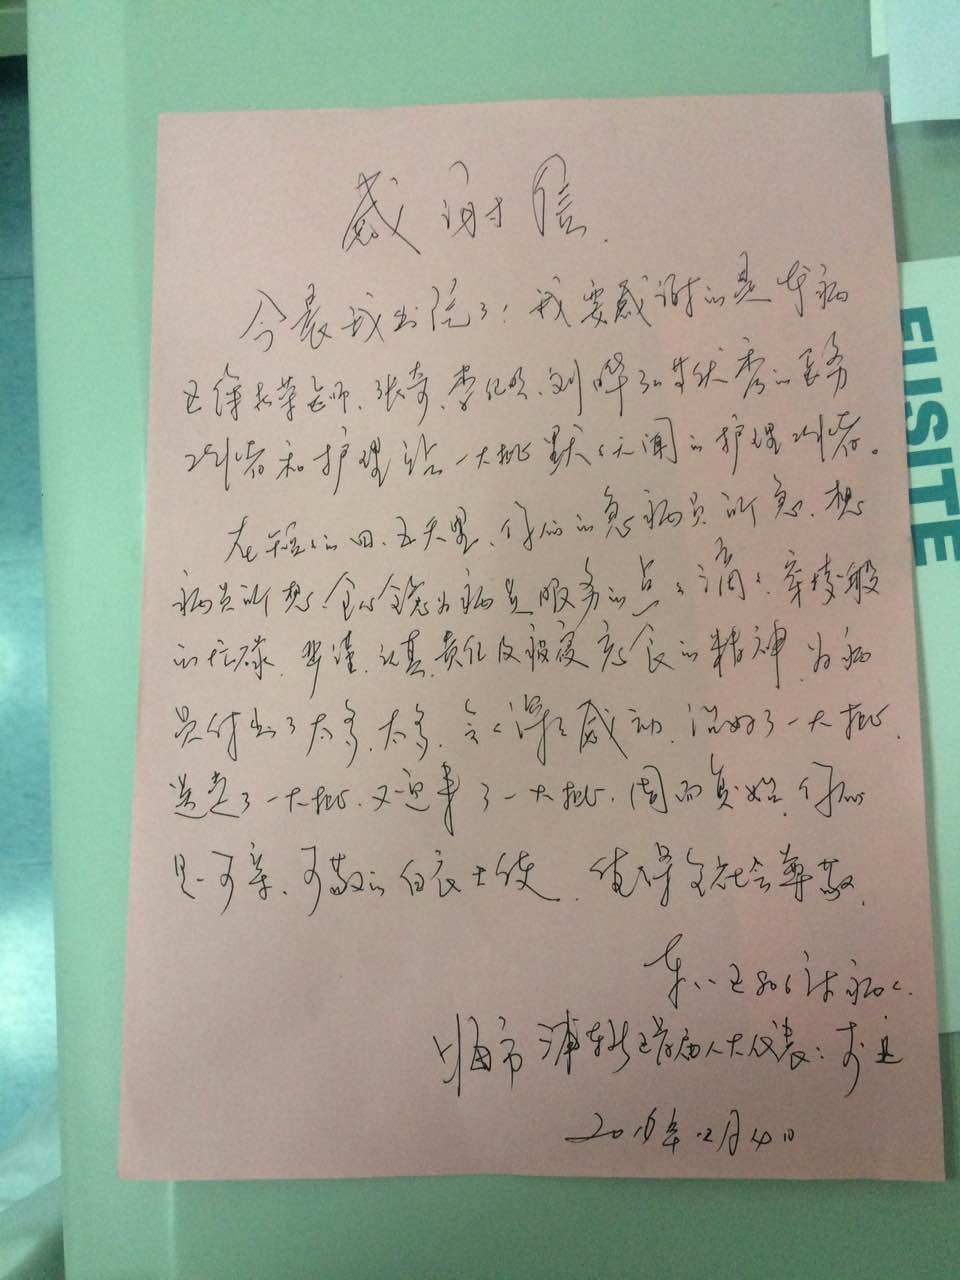 感谢信
今晨我出院了！我要感谢的是本病
区徐老师、张奇、李、刘晔等优秀的医务
工作者和护理站一大批默默无闻的护理工作者。
在短短的四、五天里、你们的急病员所急、想
病员所想、全心全意为病员服务的点点滴滴、
的忙碌、严谨、认真、责任及废寝忘食的精神、为病
员付出了太多、太多、深深感动、治好了一大批、
送走了一大批、又迎来了一大批、周而复始、你们
是可亲、可敬的白衣天使、值得全社会尊敬、
东八区806床病人
上海市浦东新区首届人大代表：
2016年12月4日
FUSITE